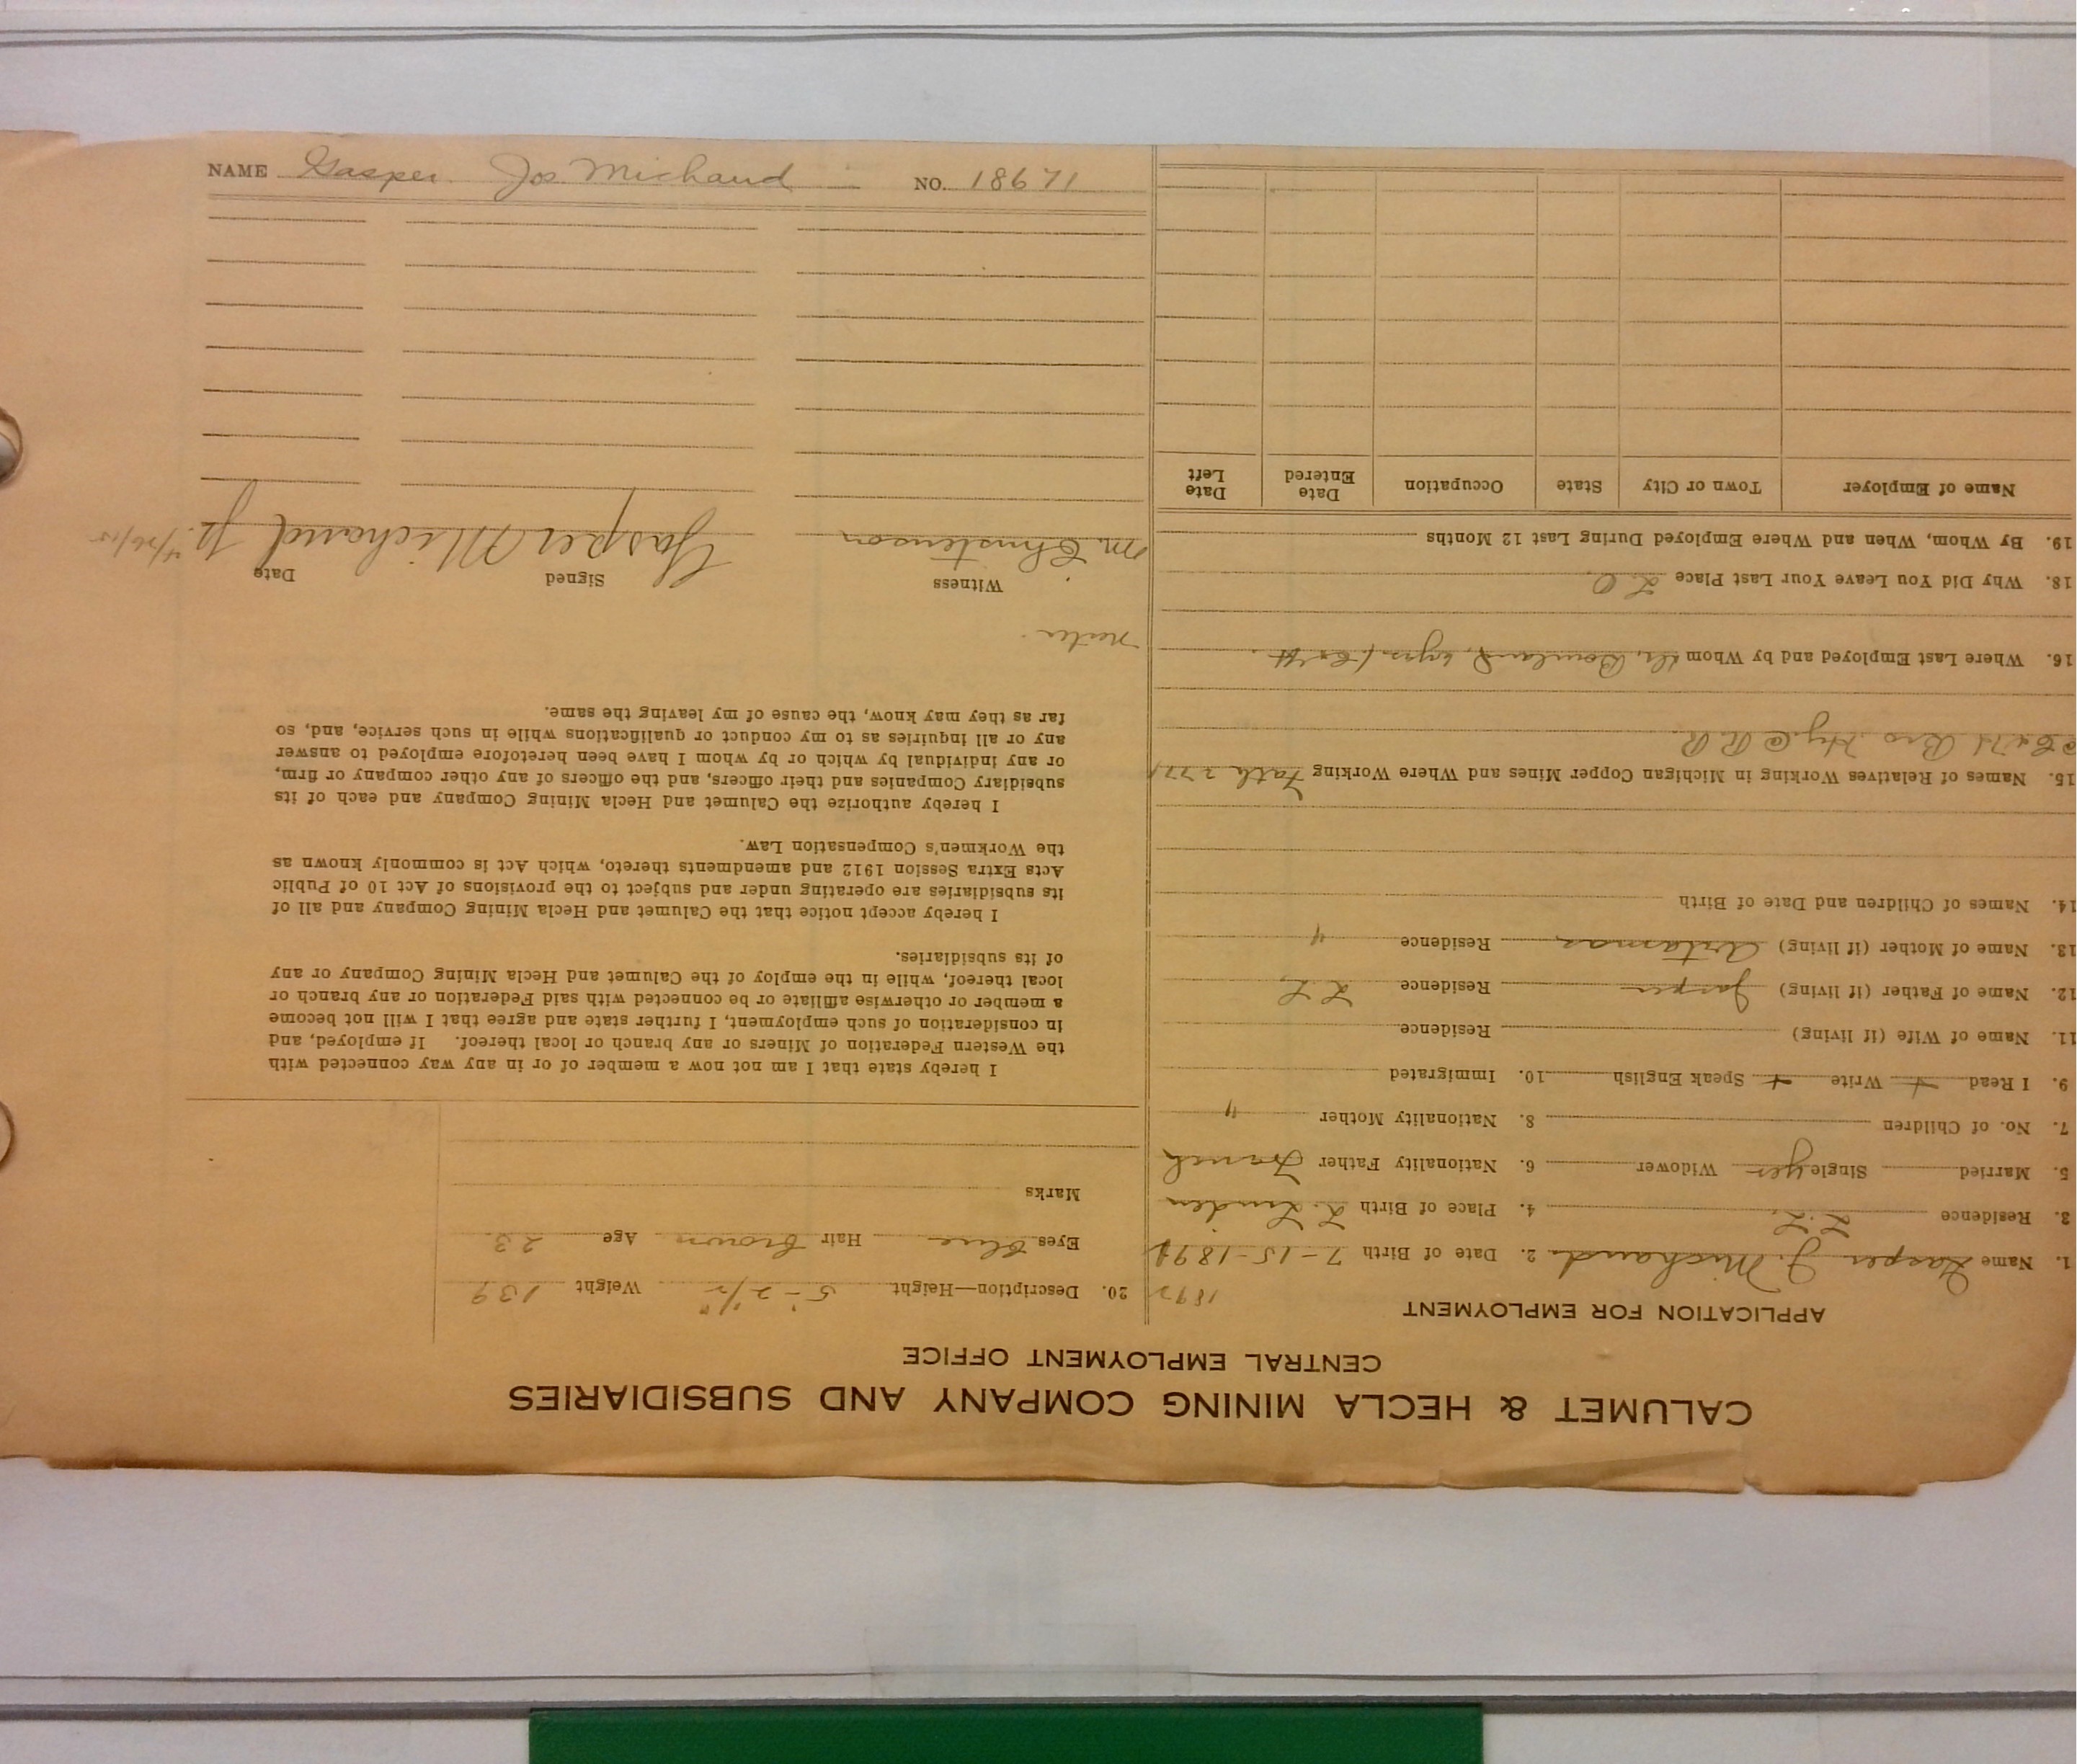 CALUMET & HECLA MINING COMPANY AND SUBSIDIARIES
CENTRAL EMPLOYMENT OFFICE
APPLICATION FOR EMPLOYMENT
1892
1. Name Gasper J. Michaud 2. Date of Birth 7-15-1891
3. Residence L.L. 4. Place of Birth L. Linden
5. Married Single yes Widower 6. Nationality Father French
7. No. of Children 8. Nationality Mother "
9. I Read + Write + Speak English 10. Immigrated
11. Name of Wife (if living) Residence
12. Name of Father (if living) Gasper Residence L L
13. Name of Mother (if living) Residence "
14. Names of Children and Date of Birth
15. Names of Relatives Working in Michigan Copper Mines and Where Working Fath 2771
C & H Bro Hy. @ R R.
16. Where Last Employed and by Whom
18. Why Did You Leave Your Last Place L O.
19. By Whom, When and Where Employed During Last 12 Months
Name of Employer Town or City State Occupation Date Entered Date Left
20. Description—Height 5'-2 1/2" Weight 139
Eyes Blue Hair Brown Age 23
Marks
I hereby state that I am not now a member of or in any way connected with
the Western Federation of Miners or any branch or local thereof. If employed, and
in consideration of such employment, I further state and agree that I will not become
a member or otherwise affiliate or be connected with said Federation or any branch or
local thereof, while in the employ of the Calumet and Hecla Mining Company or any
of its subsidiaries.
I hereby accept notice that the Calumet and Hecla Mining Company and all of
its subsidiaries are operating under and subject to the provisions of Act 10 of Public
Acts Extra Session 1912 and amendments thereto, which Act is commonly known as
the Workmen's Compensation Law.
I hereby authorize the Calumet and Hecla Mining Company and each of its
subsidiary Companies and their officers, and the officers of any other company or firm,
or any individual by which or by whom I have been heretofore employed to answer
any or all inquiries as to my conduct or qualifications while in such service, and, so
far as they may know, the cause of my leaving the same.
Witness Signed Date
M. Christenson Gasper Michaud Jr. 4/26/15
NAME Gasper Jos Michaud NO. 18671